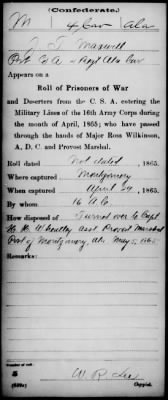 (Confederate.)
M 4 Cav Ala
J. T. Maxwell
Pvt Co A 4 Regt Ala Cav
Appears on a
Roll of Prisoners of War
and Deserters from the C. S. A. entering the
Military Lines of the 16th Army Corps during
the month of April, 1865; who have passed
through the hands of Major Ross Wilkinson,
A. D. C. and Provost Marshal.
Roll dated Not dated, 1865.
Where captured Montgomery
When captured April 27, 1865.
By whom 16 A C.
How disposed of Turned over to Capt
H. K. Wheatley asst Provost Marshal
Post of Montgomery, Ala. May 5, 1865
Remarks:
Number of roll:
5
W. R. Lee
Copyist.